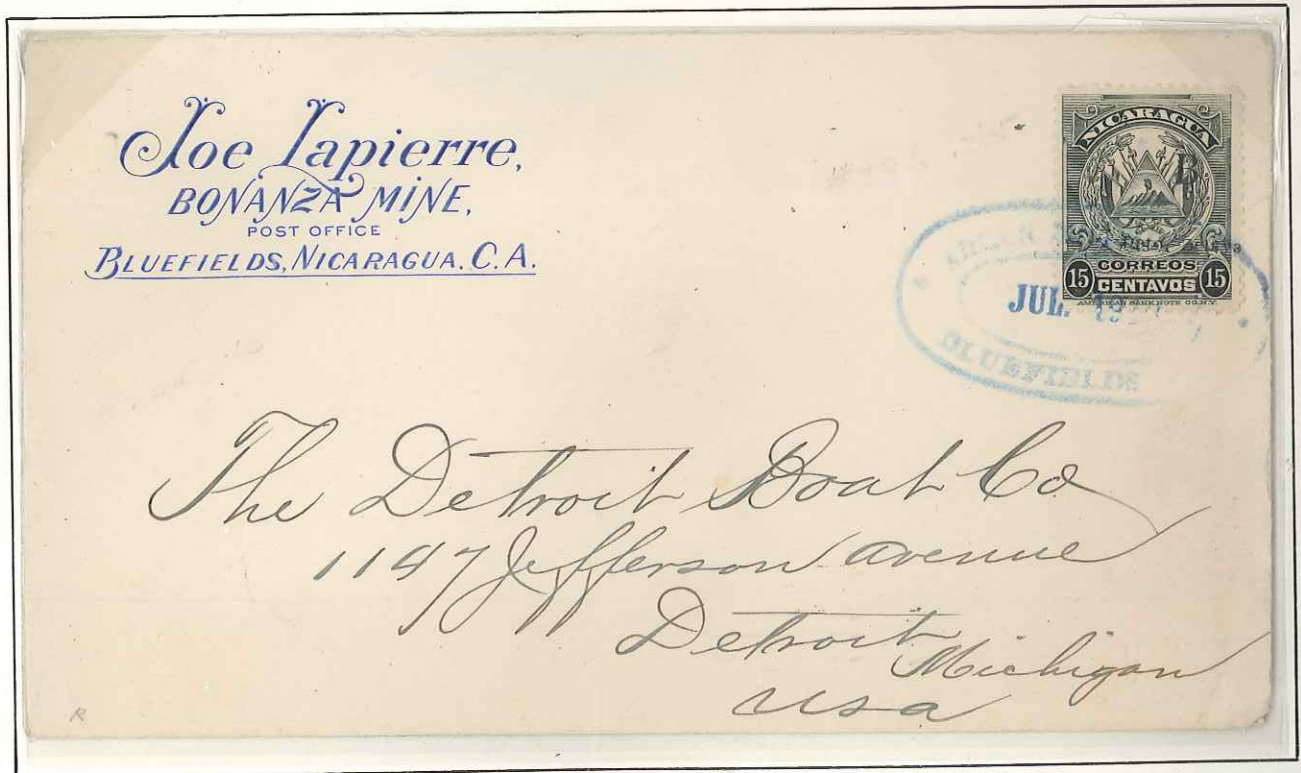 Joe Lapierre,
BONANZA MINE,
POST OFFICE
BLUEFIELDS, NICARAGUA. C. A.
NICARAGUA
B
CORREOS
15 CENTAVOS 15
AMERICAN BANK NOTE CO. N.Y.
JUL.
BLUEFIELDS
The Detroit Boat Co
1147 Jefferson avenue
Detroit
Michigan
USA
R